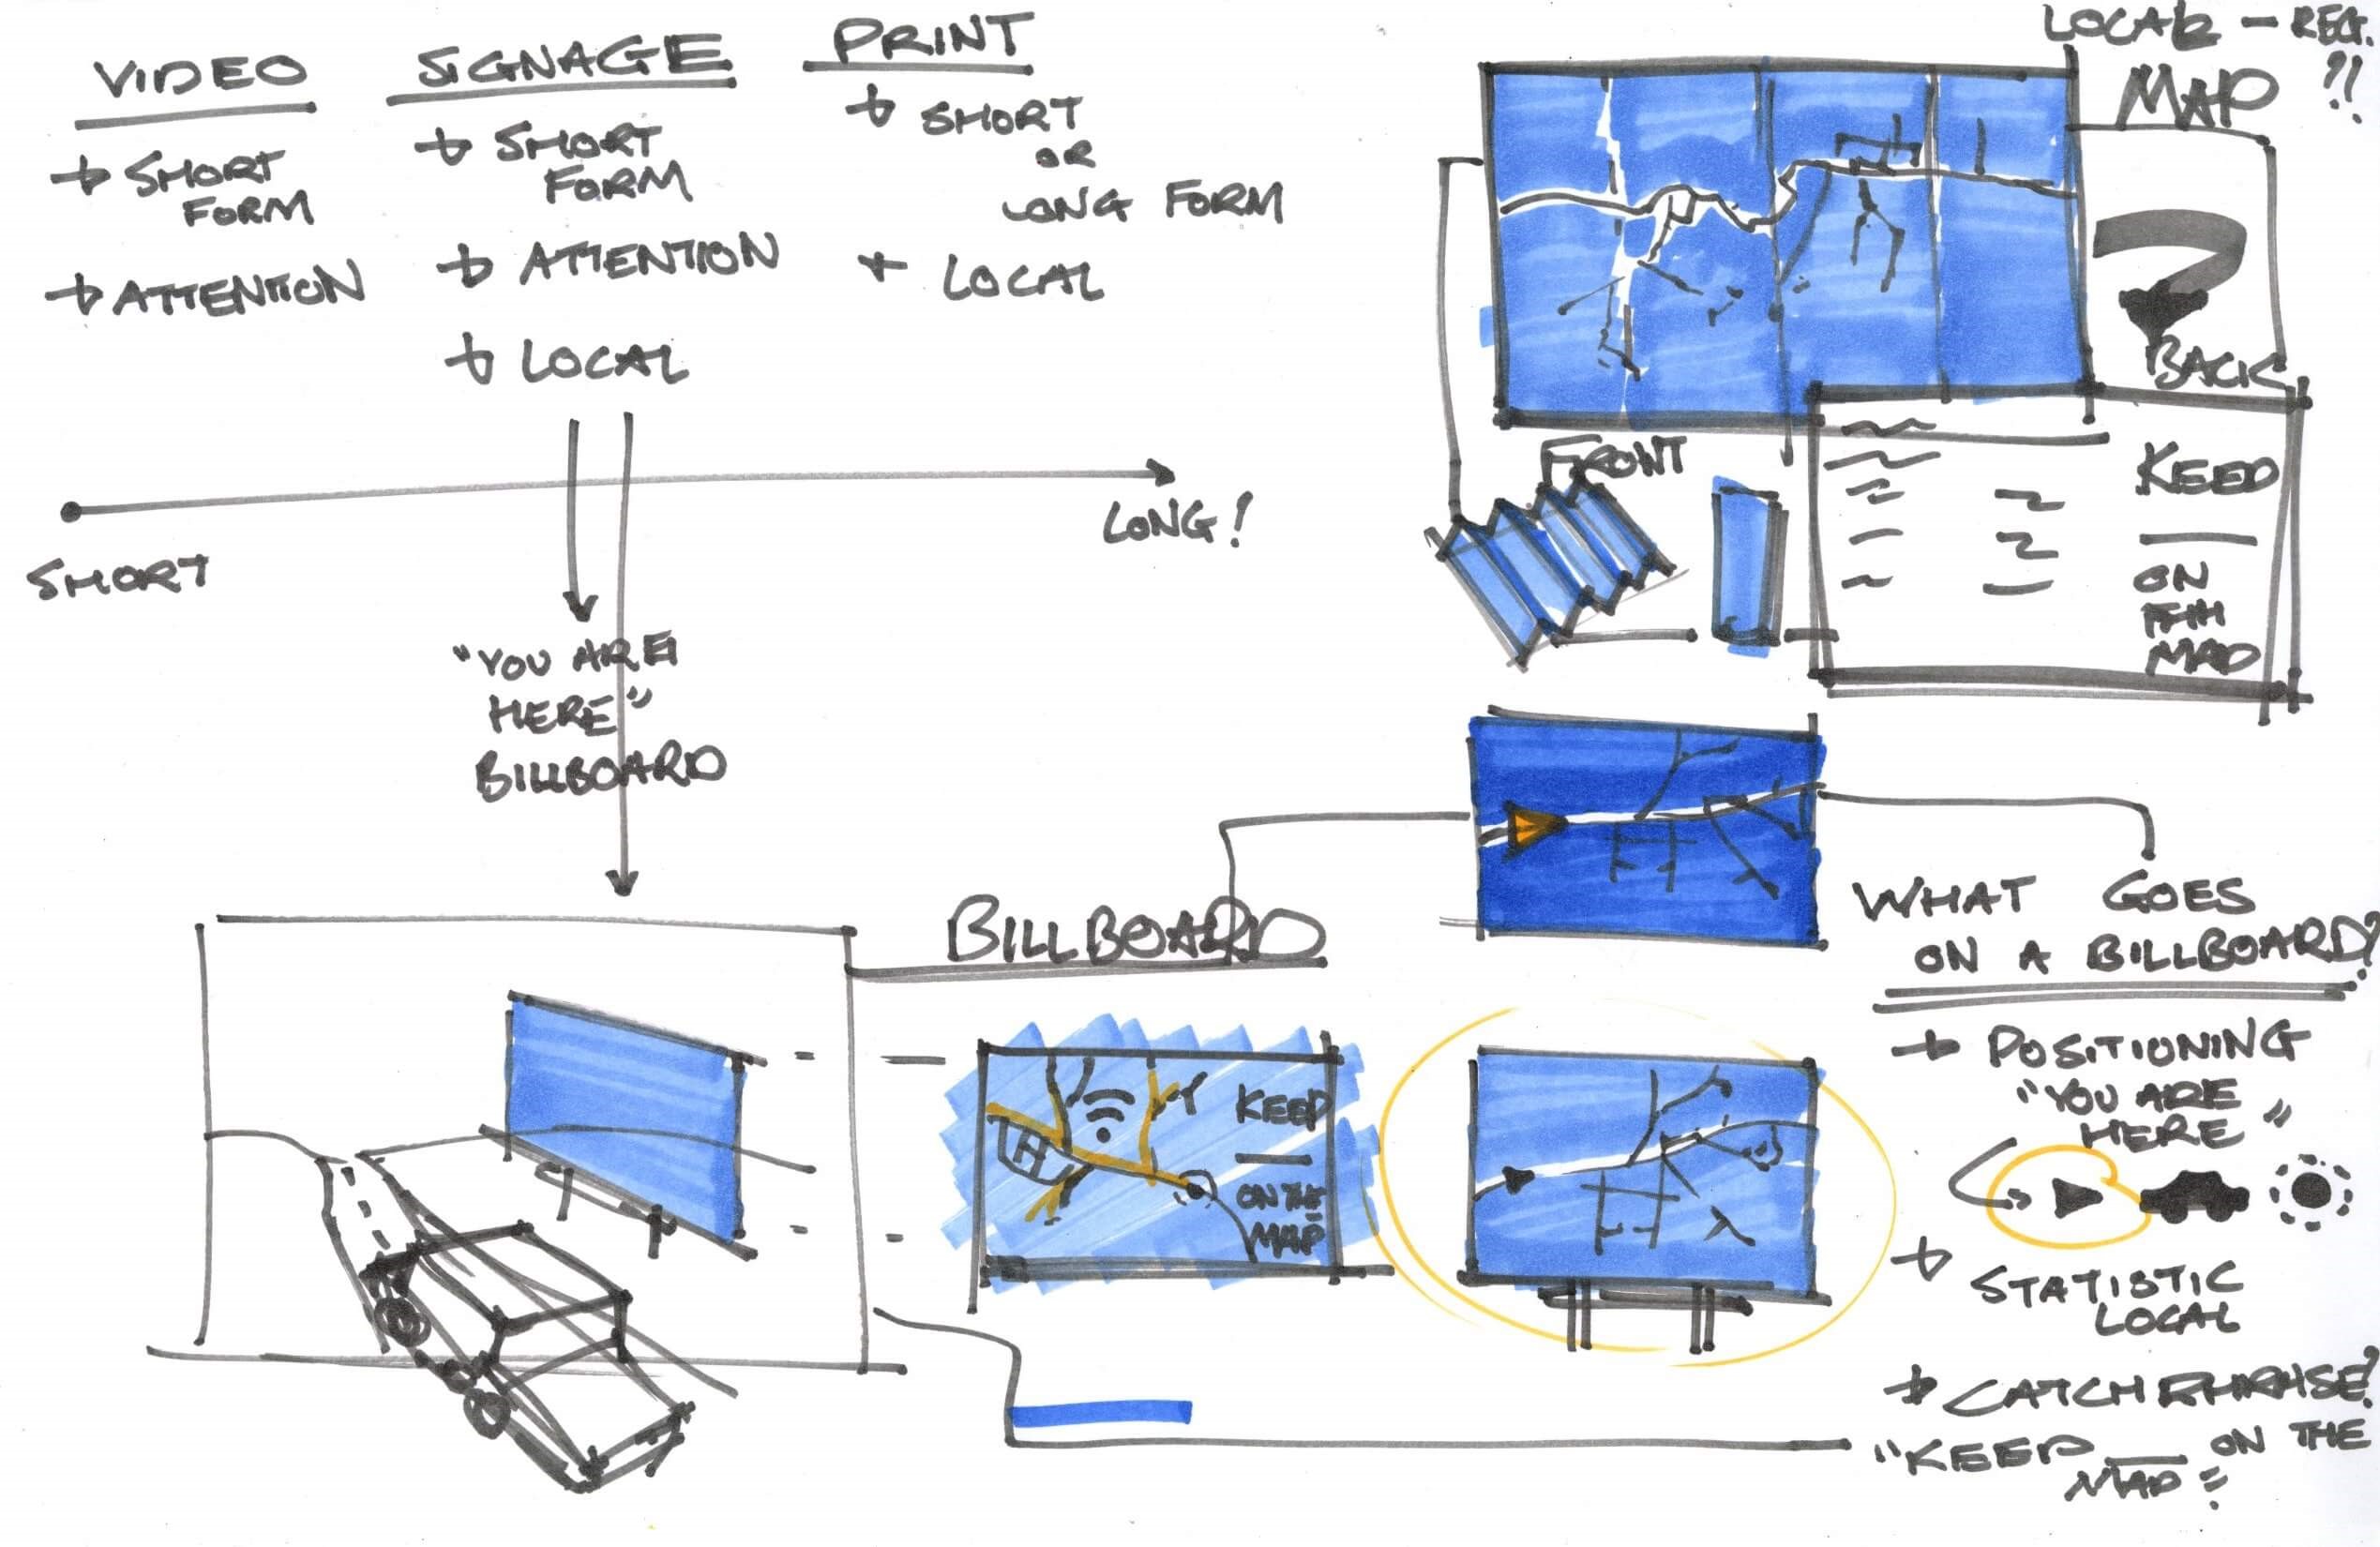 VIDEO
+ SHORT
FORM
+ ATTENTION
SIGNAGE
+ SHORT
FORM
+ ATTENTION
+ LOCAL
PRINT
+ SHORT
OR
LONG FORM
+ LOCAL
SHORT
LONG!
"YOU ARE
HERE"
BILLBOARD
LOCAL - REG.
MAP ?!
BACK
FRONT
KEEP
ON
THE
MAP
BILLBOARD
KEEP
ON THE
MAP
H
WHAT GOES
ON A BILLBOARD?
+ POSITIONING
"YOU ARE
HERE"
+ STATISTIC
LOCAL
+ CATCHPHRASE?
"KEEP ___ ON THE
MAP"